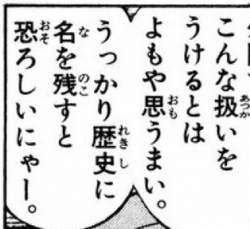 こんな扱いを
うけるとは
よもや思うまい。
うっかり歴史に
名を残すと
恐ろしいにゃー。